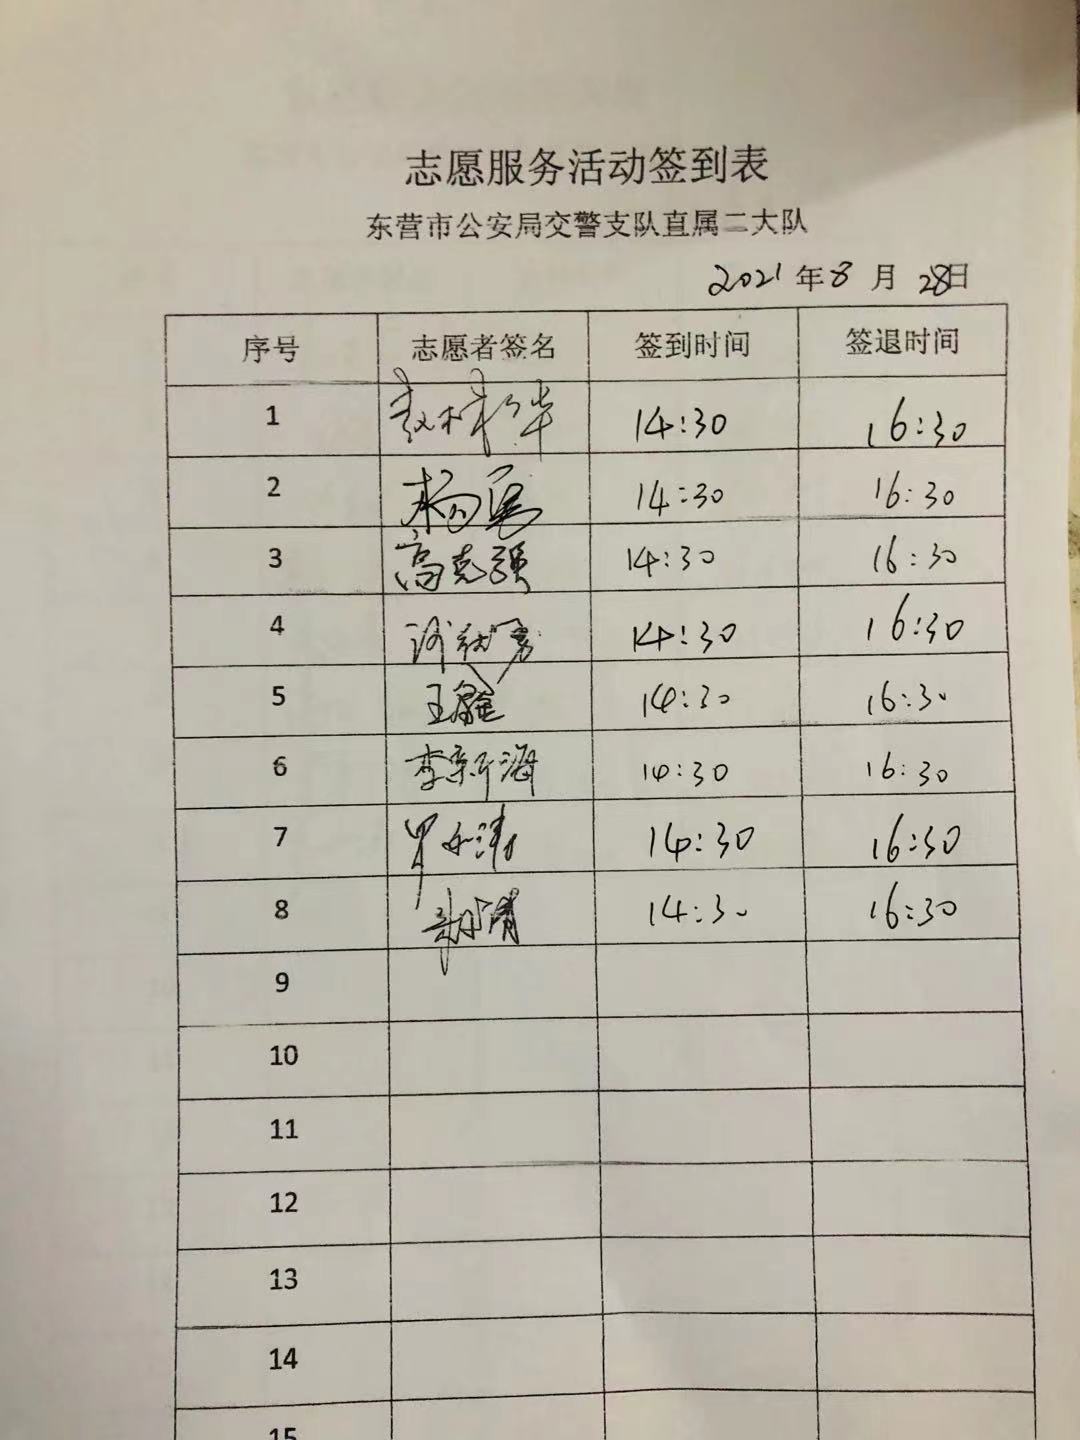 志愿服务活动签到表
东营市公安局交警支队直属二大队
2021年8月28日
序号 志愿者签名 签到时间 签退时间
1 14:30 16:30
2 14:30 16:30
3 高克强 14:30 16:30
4 14:30 16:30
5 王鑫 14:30 16:30
6 李新海 14:30 16:30
7 14:30 16:30
8 14:30 16:30
9
10
11
12
13
14
15